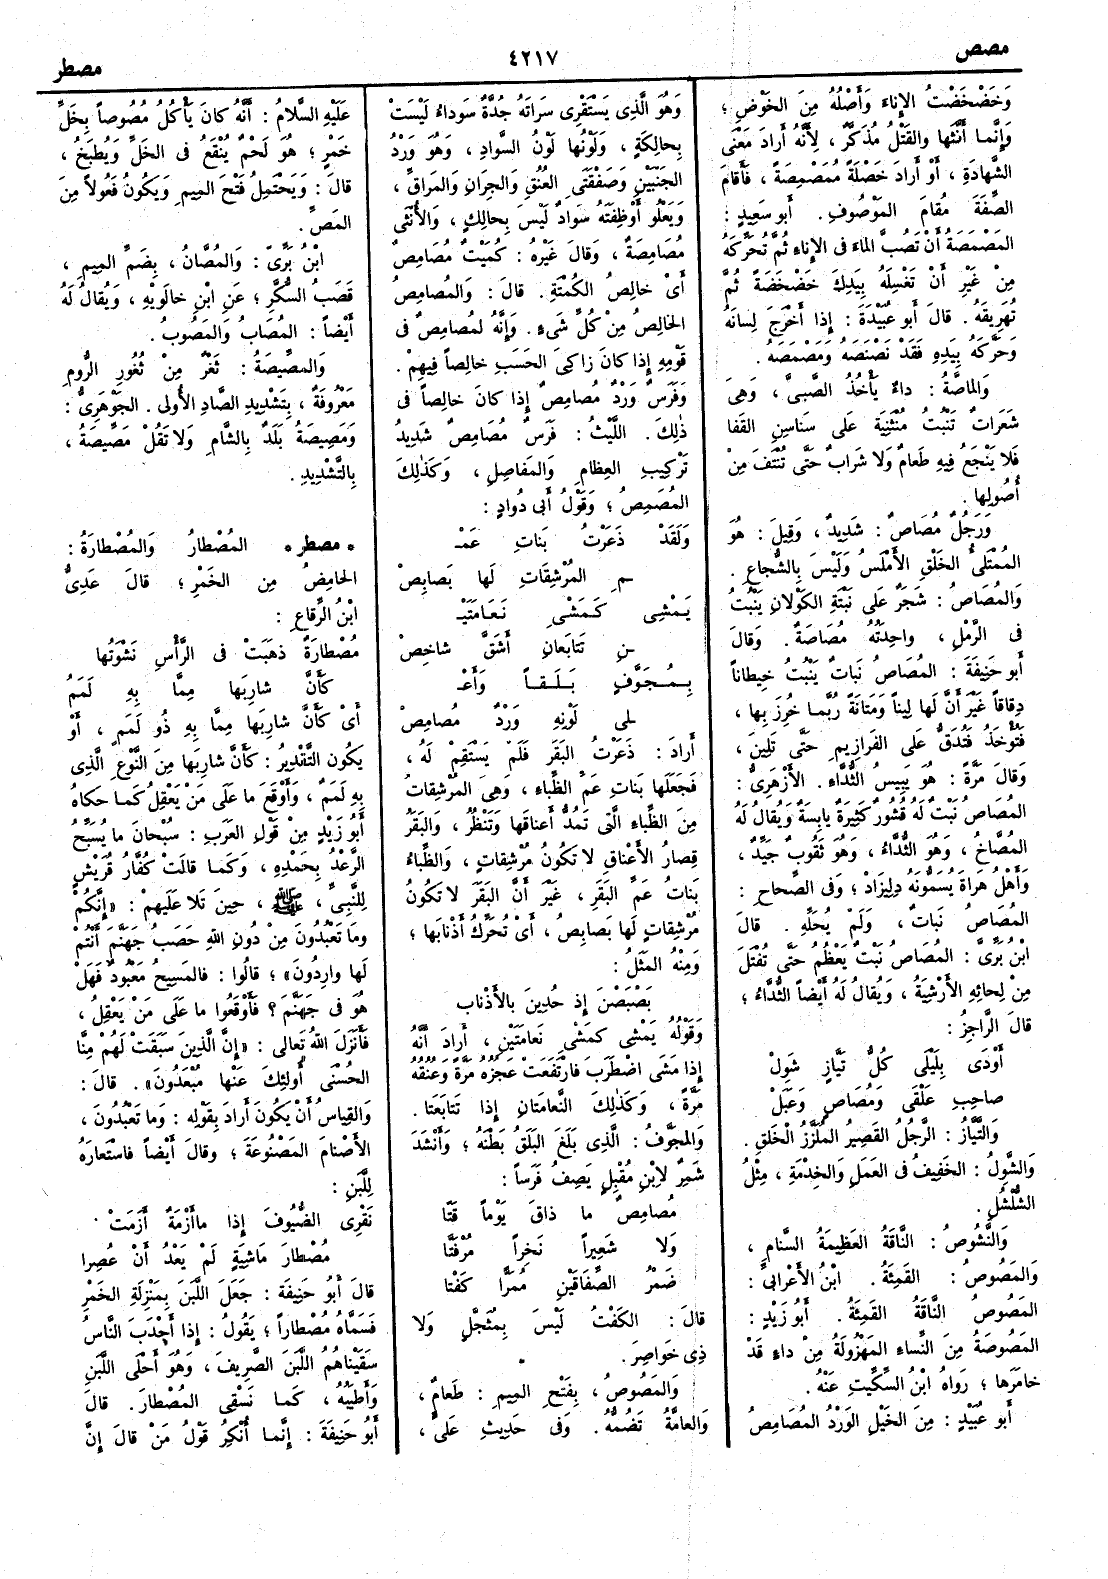 مصص
٤٢١٧
مصطر
وَخَضْخَضْتُ الإِناءَ وَأَصْلُهُ مِنَ الخَوْضِ ؛
وَإِنَّما أَنَّثَها والقَتْلُ مُذَكَّرٌ ، لِأَنَّهُ أَرادَ مَعْنَى
الشَّهادَةِ ، أَوْ أَرادَ خَصْلَةً مُمَصْمِصَةً ، فَأَقامَ
الصِّفَةَ مُقامَ المَوْصُوفِ . أَبو سَعِيدٍ :
المَصْمَصَةُ أَنْ تَصُبَّ الماءَ فى الإِناءِ ثُمَّ تُحَرِّكَهُ
مِنْ غَيْرِ أَنْ تَغْسِلَهُ بِيَدِكَ خَضْخَضَةً ثُمَّ
تُهَرِيقَهُ . قالَ أَبو عُبَيْدَةَ : إِذا أَخْرَجَ لِسانَهُ
وَحَرَّكَهُ بِيَدِهِ فَقَدْ نَصْنَصَهُ وَمَصْمَصَهُ .
وَالماصَّةُ : داءٌ يَأْخُذُ الصَّبِىَّ ، وَهِىَ
شَعَراتٌ تَنْبُتُ مُنْثَنِيَةً عَلَى سَناسِنِ القَفا
فَلا يَنْجَعُ فِيهِ طَعامٌ وَلا شَرابٌ حَتَّى تُنْتَفَ مِنْ
أُصُولِها .
وَرَجُلٌ مُصاصٌ : شَدِيدٌ ، وَقِيلَ : هُوَ
المُمْتَلِئُ الخَلْقِ الأَمْلَسُ وَلَيْسَ بِالشُّجاعِ .
وَالمُصاصُ : شَجَرٌ عَلَى نَبْتَةِ الكَوْلانِ يَنْبُتُ
فى الرَّمْلِ ، واحِدَتُهُ مُصاصَةٌ . وَقالَ
أَبو حَنِيفَةَ : المُصاصُ نَباتٌ يَنْبُتُ خِيطاناً
دِقاقاً غَيْرَ أَنَّ لَها لِيناً وَمَتانَةً رُبَّما خُرِزَ بِها ،
فَتُؤْخَذُ فَتُدَقُّ عَلَى الفَرازِيمِ حَتَّى تَلِينَ ،
وَقالَ مَرَّةً : هُوَ يَبِيسُ الثُّدَّاءِ . الأَزْهَرِىُّ :
المُصاصُ نَبْتٌ لَهُ قُشُورٌ كَثِيرَةٌ يابِسَةٌ وَيُقالُ لَهُ
المُصَّاخُ ، وَهُوَ الثُّدَّاءُ ، وَهُوَ ثَقُوبٌ جَيِّدٌ ،
وَأَهْلُ هَراةَ يُسَمُّونَهُ دِلِيزادْ ؛ وَفى الصِّحاحِ :
المُصاصُ نَباتٌ ، وَلَمْ يُحَلِّهِ . قالَ
ابْنُ بَرِّىّ : المُصاصُ نَبْتٌ يَعْظُمُ حَتَّى تُفْتَلَ
مِنْ لِحائِهِ الأَرْشِيَةُ ، وَيُقالُ لَهُ أَيْضاً الثُّدَّاءُ ؛
قالَ الرَّاجِزُ :
أَوْدَى بِلَيْلَى كُلُّ تَيَّازٍ شَوِلْ
صاحِبِ عَلْقَى وَمُصاصٍ وَعَبَلْ
وَالتَّيَّازُ : الرَّجُلُ القَصِيرُ المُلَزَّزُ الْخَلقِ .
وَالشَّوِلُ : الخَفِيفُ فى العَمَلِ وَالخِدْمَةِ ، مِثْلُ
الشُّلْشُلِ .
وَالنَّشُوصُ : النَّاقَةُ العَظِيمَةُ السَّنامِ ،
وَالمَصُوصُ : القَمِئَةُ . ابْنُ الأَعْرابِىِّ :
المَصُوصُ النَّاقَةُ القَمِئَةُ . أَبُو زَيْدٍ :
المَصُوصَةُ مِنَ النِّساءِ المَهْزُولَةُ مِنْ داءٍ قَدْ
خامَرَها ؛ رَواهُ ابْنُ السِّكِّيتِ عَنْهُ .
أَبو عُبَيْدٍ : مِنَ الخَيْلِ الوَرْدُ المُصامِصُ
وَهُوَ الَّذِى يَسْتَقْرِى سَراتَهُ جُدَّةٌ سَوداءُ لَيْسَتْ
بِحالِكَةٍ ، وَلَوْنُها لَوْنُ السَّوادِ ، وَهُوَ وَرْدُ
الجَنْبَيْنِ وَصَفْقَتَىِ العُنُقِ وَالجِرَانِ وَالمَراقِّ ،
وَيَعْلُو أَوْظِفَتَهُ سَوادٌ لَيْسَ بِحالِكٍ ، وَالأُنْثَى
مُصامِصَةٌ ، وَقالَ غَيْرُهُ : كُمَيْتٌ مُصامِصٌ
أَىْ خالِصُ الكُمْتَةِ . قالَ : وَالمُصامِصُ
الخالِصُ مِنْ كُلِّ شَىْءٍ . وَإِنَّهُ لَمُصامِصٌ فى
قَوْمِهِ إِذا كانَ زاكِىَ الحَسَبِ خالِصاً فِيهِمْ .
وَفَرَسٌ وَرْدٌ مُصامِصٌ إِذا كانَ خالِصاً فى
ذٰلِكَ . اللَّيْثُ : فَرَسٌ مُصامِصٌ شَدِيدُ
تَرْكِيبِ العِظامِ وَالمَفاصِلِ ، وَكَذٰلِكَ
المُصَمِصُ ؛ وَقَوْلُ أَبى دُوادٍ :
وَلَقَدْ ذَعَرْتُ بَناتِ عَمْـ
ـمِ المُرْشِقاتِ لَها بَصابِصْ
يَمْشِى كَمَشْىِ نَعَامَتَيْـ
ـنِ تَتابَعانِ أَشَقَّ شاخِصْ
بِمُجَوَّفٍ بَلَقاً وَأَعْـ
ـلى لَوْنِهِ وَرْدٌ مُصامِصْ
أَرادَ : ذَعَرْتُ البَقَرَ فَلَمْ يَسْتَقِمْ لَهُ ،
فَجَعَلَها بَناتِ عَمِّ الظِّباءِ ، وَهِىَ المُرْشِقاتُ
مِنَ الظِّباءِ الَّتى تَمُدُّ أَعْناقَها وَتَنْظُرُ ، وَالبَقَرُ
قِصارُ الأَعْناقِ لا تَكُونُ مُرْشِقاتٍ ، وَالظِّباءُ
بَناتُ عَمِّ البَقَرِ ، غَيْرَ أَنَّ البَقَرَ لا تَكُونُ
مُرْشِقاتٍ لَها بَصابِصُ ، أَىْ تُحَرِّكُ أَذْنابَها ؛
وَمِنْهُ المَثَلُ :
بَصْبَصْنَ إِذ حُدِينَ بِالأَذْنابِ
وَقَوْلُهُ يَمْشى كَمَشْىِ نَعامَتَيْنِ ، أَرادَ أَنَّهُ
إِذا مَشَى اضْطَرَبَ فارْتَفَعَتْ عَجُزُهُ مَرَّةً وَعُنُقُهُ
مَرَّةً ، وَكَذٰلِكَ النَّعامَتانِ إِذا تَتابَعَتا .
وَالمُجَوَّفُ : الَّذِى بَلَغَ البَلَقُ بَطْنَهُ ؛ وَأَنْشَدَ
شَمِرٌ لِابْنِ مُقْبِلٍ يَصِفُ فَرَساً :
مُصامِصٌ ما ذاقَ يَوْماً قَتَّا
وَلا شَعِيراً نَخِراً مُرْفَتَّا
ضَمْرُ الصِّفَاقَيْنِ مُمَرًّا كَفْتَا
قالَ : الكَفْتُ لَيْسَ بِمُثَجَّلٍ وَلا
ذِى خَواصِرَ .
وَالمَصُوصُ ، بِفَتْحِ المِيمِ : طَعامٌ ،
وَالعامَّةُ تَضُمُّهُ . وَفى حَدِيثِ عَلىٍّ ،
عَلَيْهِ السَّلامُ : أَنَّهُ كانَ يَأْكُلُ مُصُوصاً بِخَلِّ
خَمْرٍ ؛ هُوَ لَحْمٌ يُنْقَعُ فى الخَلِّ وَيُطْبَخُ ،
قالَ : وَيَحْتَمِلُ فَتْحَ المِيمِ وَيَكُونُ فَعُولاً مِنَ
المَصِّ .
ابْنُ بَرِّىّ : وَالمُصَّانُ ، بِضَمِّ المِيمِ ،
قَصَبُ السُّكَّرِ ؛ عَنِ ابْنِ خالَوَيْهِ ، وَيُقالُ لَهُ
أَيْضاً : المُصابُ وَالمَصُوبُ .
وَالمِصِّيصَةُ : ثَغْرٌ مِنْ ثُغُورِ الرُّومِ
مَعْرُوفَةٌ ، بِتَشْدِيدِ الصَّادِ الأُولَى . الجَوْهَرِىُّ :
وَمَصِيصَةُ بَلَدٌ بِالشَّامِ وَلا تَقُلْ مَصِّيصَةُ ،
بِالتَّشْدِيدِ .
• مصطر • المُصْطارُ وَالمُصْطارَةُ :
الحامِضُ مِنِ الخَمْرِ ؛ قالَ عَدِىُّ
ابْنُ الرِّقاعِ :
مُصْطارَةٌ ذَهَبَتْ فى الرَّأْسِ نَشْوَتُها
كَأَنَّ شارِبَها مِمَّا بِهِ لَمَمُ
أَىْ كَأَنَّ شارِبَها مِمَّا بِهِ ذُو لَمَمٍ ، أَوْ
يَكُون التَّقْدِيرُ : كَأَنَّ شارِبَها مِنَ النَّوْعِ الَّذِى
بِهِ لَمَمٌ ، وَأَوْقَعَ ما عَلَى مَنْ يَعْقِلُ كَما حَكاهُ
أَبُو زَيْدٍ مِنْ قَوْلِ العَرَبِ : سُبْحانَ ما يُسَبِّحُ
الرَّعْدُ بِحَمْدِهِ ، وَكَما قالَتْ كُفَّارُ قُرَيْشٍ
لِلنَّبِىِّ ، ﷺ ، حِينَ تَلا عَلَيهِمْ : «إِنَّكُمْ
وَما تَعْبُدُونَ مِنْ دُونِ اللهِ حَصَبُ جَهَنَّمَ أَنْتُمْ
لَها وارِدُونَ» ؛ قالُوا : فالمَسِيحُ مَعْبُودٌ فَهَلْ
هُوَ فى جَهَنَّمَ ؟ فَأَوْقَعُوا ما عَلَى مَنْ يَعْقِلُ ،
فَأَنْزَلَ اللهُ تَعالى : «إِنَّ الَّذِينَ سَبَقَتْ لَهُمْ مِنَّا
الحُسْنَى أُولئِكَ عَنْها مُبْعَدُونَ» . قالَ :
وَالقِياسُ أَنْ يَكُونَ أَرادَ بِقَوْلِهِ : وَما تَعْبُدُونَ ،
الأَصْنامَ المَصْنُوعَةَ ؛ وَقالَ أَيْضاً فاسْتَعارَهُ
لِلَّبَنِ :
نَقْرِى الضُّيُوفَ إِذا ما أَزْمَةٌ أَزَمَتْ
مُصْطارَ ماشِيَةٍ لَمْ يَعْدُ أَنْ عُصِرا
قالَ أَبُو حَنِيفَةَ : جَعَلَ اللَّبَنَ بِمَنْزِلَةِ الخَمْرِ
فَسَمَّاهُ مُصْطاراً ؛ يَقُولُ : إِذا أَجْدَبَ النَّاسُ
سَقَيْناهُمُ اللَّبَنَ الصَّرِيفَ ، وَهُوَ أَحْلَى اللَّبَنِ
وَأَطْيَبُهُ ، كَما نَسْقِى المُصْطارَ . قالَ
أَبُو حَنِيفَةَ : إِنَّما أُنْكِرُ قَوْلَ مَنْ قالَ إِنَّ